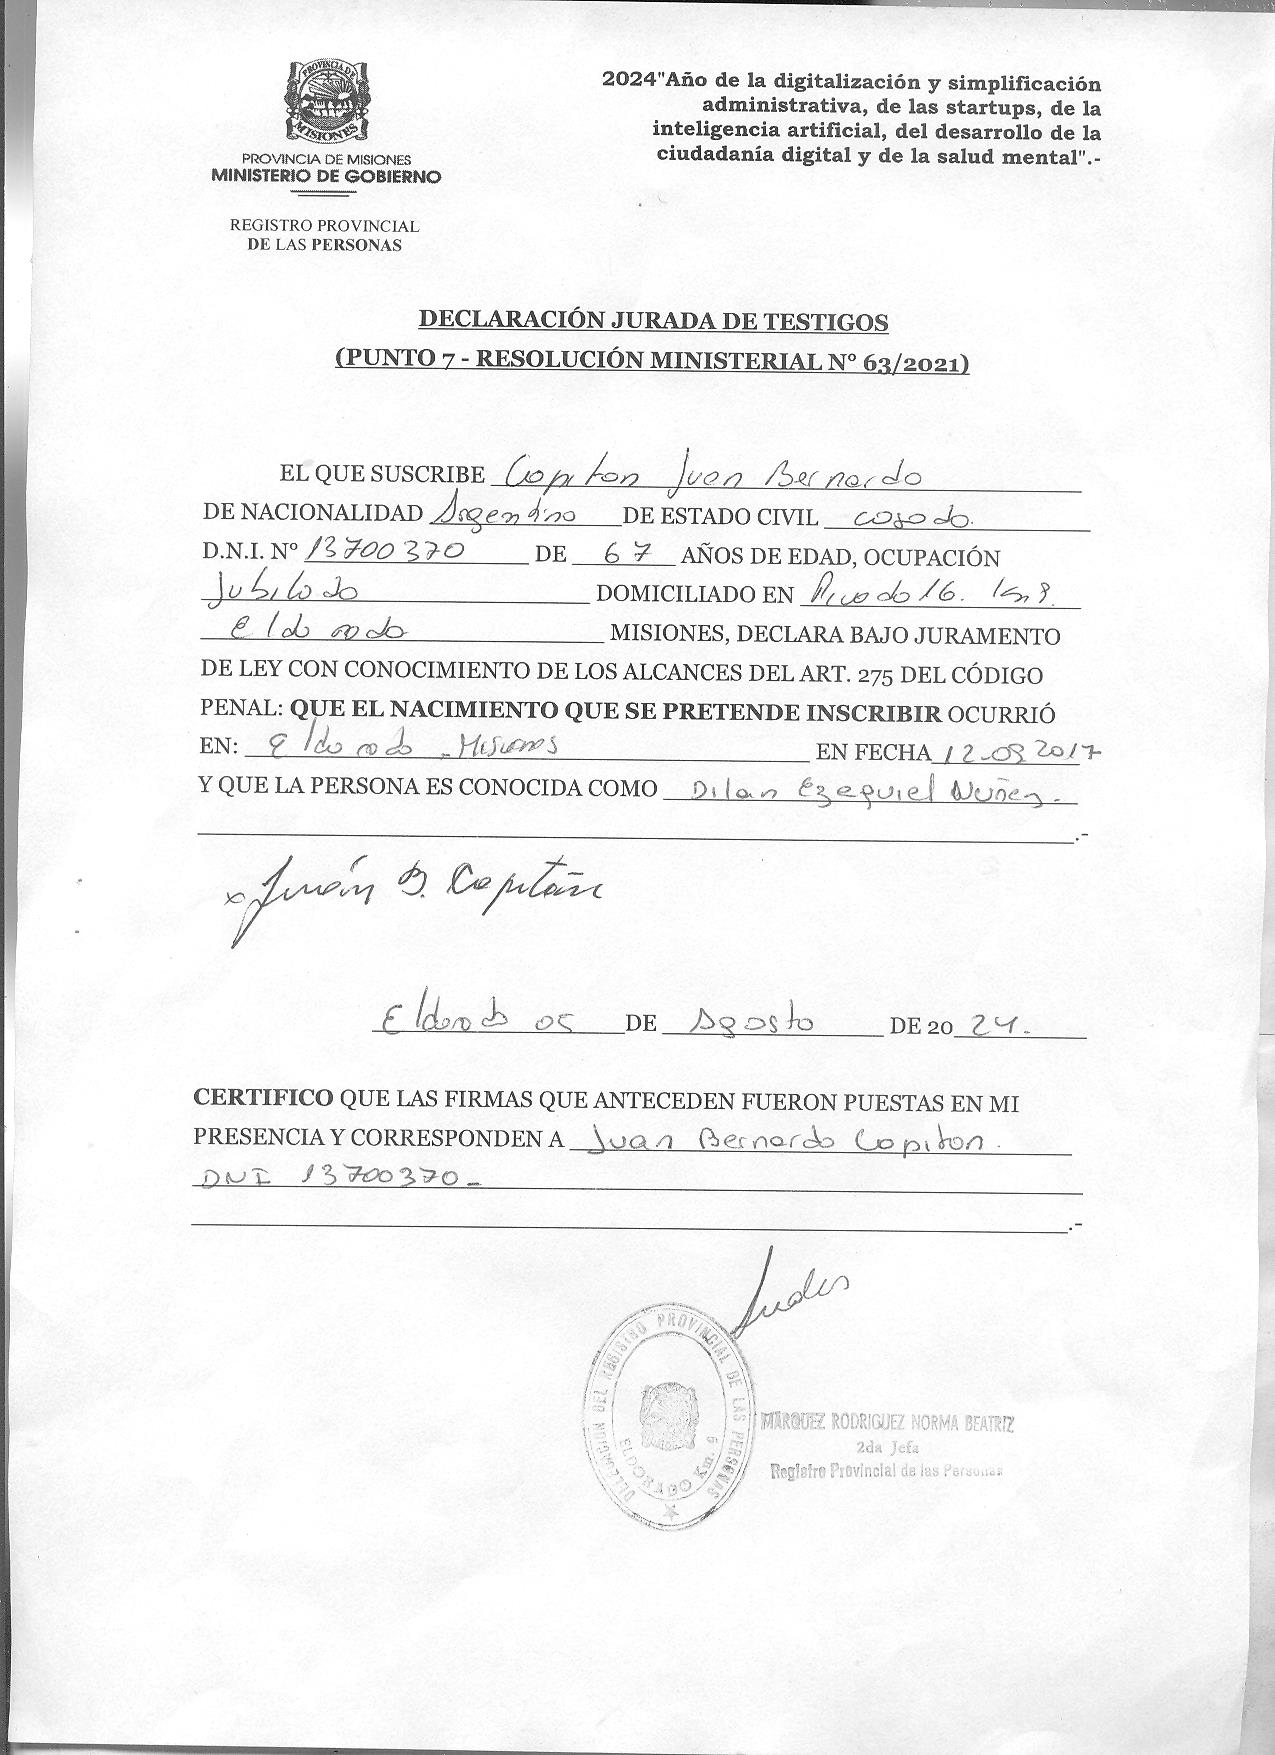 PROVINCIA DE
MISIONES
PROVINCIA DE MISIONES
MINISTERIO DE GOBIERNO
REGISTRO PROVINCIAL
DE LAS PERSONAS
2024"Año de la digitalización y simplificación
administrativa, de las startups, de la
inteligencia artificial, del desarrollo de la
ciudadanía digital y de la salud mental".-
DECLARACIÓN JURADA DE TESTIGOS
(PUNTO 7 - RESOLUCIÓN MINISTERIAL N° 63/2021)
EL QUE SUSCRIBE Capitan Juan Bernardo
DE NACIONALIDAD Argentino DE ESTADO CIVIL casado.
D.N.I. N° 13700370 DE 67 AÑOS DE EDAD, OCUPACIÓN
Jubilado DOMICILIADO EN 16.
Eldorado MISIONES, DECLARA BAJO JURAMENTO
DE LEY CON CONOCIMIENTO DE LOS ALCANCES DEL ART. 275 DEL CÓDIGO
PENAL: QUE EL NACIMIENTO QUE SE PRETENDE INSCRIBIR OCURRIÓ
EN: Eldorado - Misiones EN FECHA 2017
Y QUE LA PERSONA ES CONOCIDA COMO Dilan Ezequiel Nuñez.-
.-
x Juán B. Capitán
Eldorado 05 DE Agosto DE 2024.
CERTIFICO QUE LAS FIRMAS QUE ANTECEDEN FUERON PUESTAS EN MI
PRESENCIA Y CORRESPONDEN A Juan Bernardo Capitan.
DNI 13700370-
.-
DELEGACION DEL REGISTRO PROVINCIAL DE LAS PERSONAS
ELDORADO Km. 9
MARQUEZ RODRIGUEZ NORMA BEATRIZ
2da Jefa
Registro Provincial de las Personas